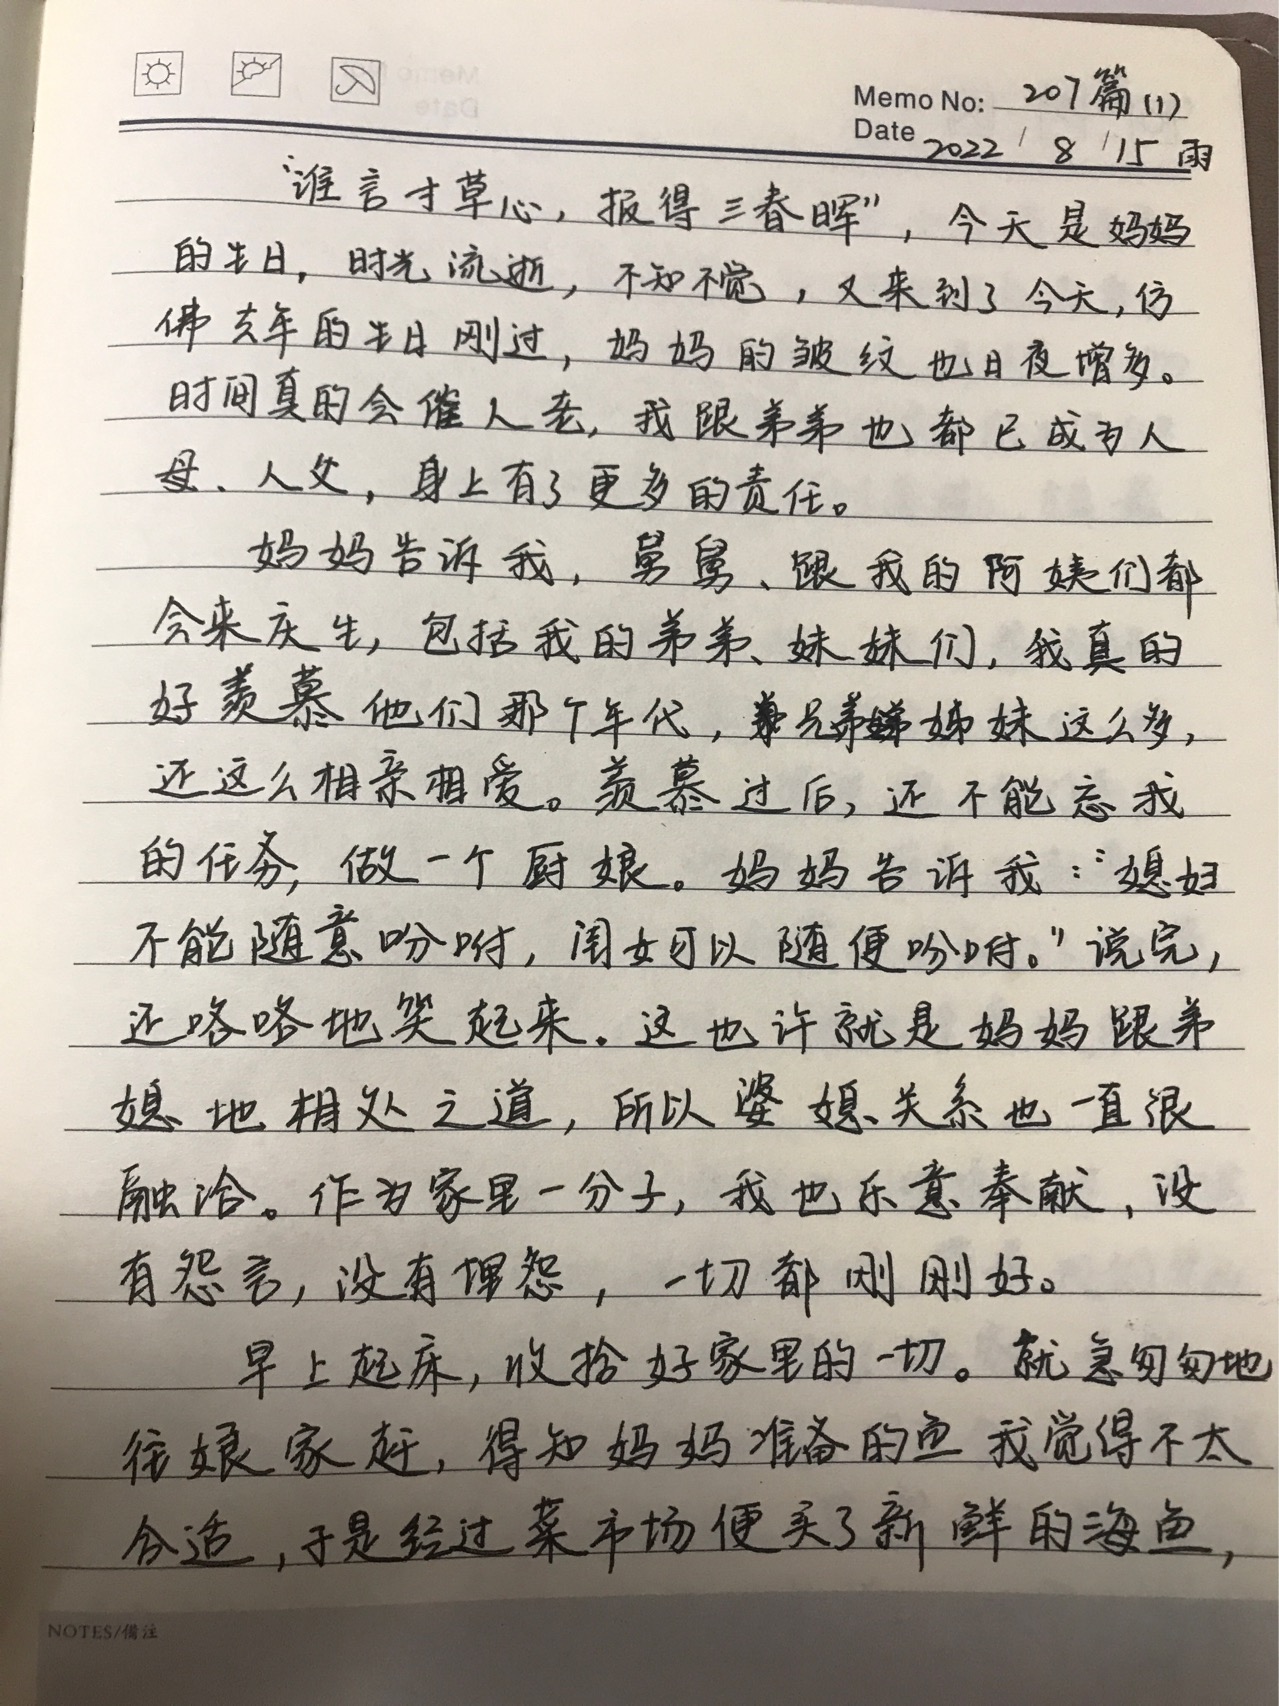 Memo No: 207篇(1)
Date 2022/8/15 雨
“谁言寸草心，报得三春晖”，今天是妈妈
的生日，时光流逝，不知不觉，又来到了今天，仿
佛去年的生日刚过，妈妈的皱纹也日夜增多。
时间真的会催人老，我跟弟弟也都已成为人
母、人父，身上有了更多的责任。
妈妈告诉我，舅舅、跟我的阿姨们都
会来庆生，包括我的弟弟、妹妹们，我真的
好羡慕他们那个年代，兄弟姊妹这么多，
还这么相亲相爱。羡慕过后，还不能忘我
的任务，做一个厨娘。妈妈告诉我：“媳妇
不能随意吩咐，闺女可以随便吩咐。”说完，
还咯咯地笑起来。这也许就是妈妈跟弟
媳地相处之道，所以婆媳关系也一直很
融洽。作为家里一分子，我也乐意奉献，没
有怨言，没有埋怨，一切都刚刚好。
早上起床，收拾好家里的一切。就急匆匆地
往娘家赶，得知妈妈准备的鱼我觉得不太
合适，于是经过菜市场便买了新鲜的海鱼，
NOTES/备注